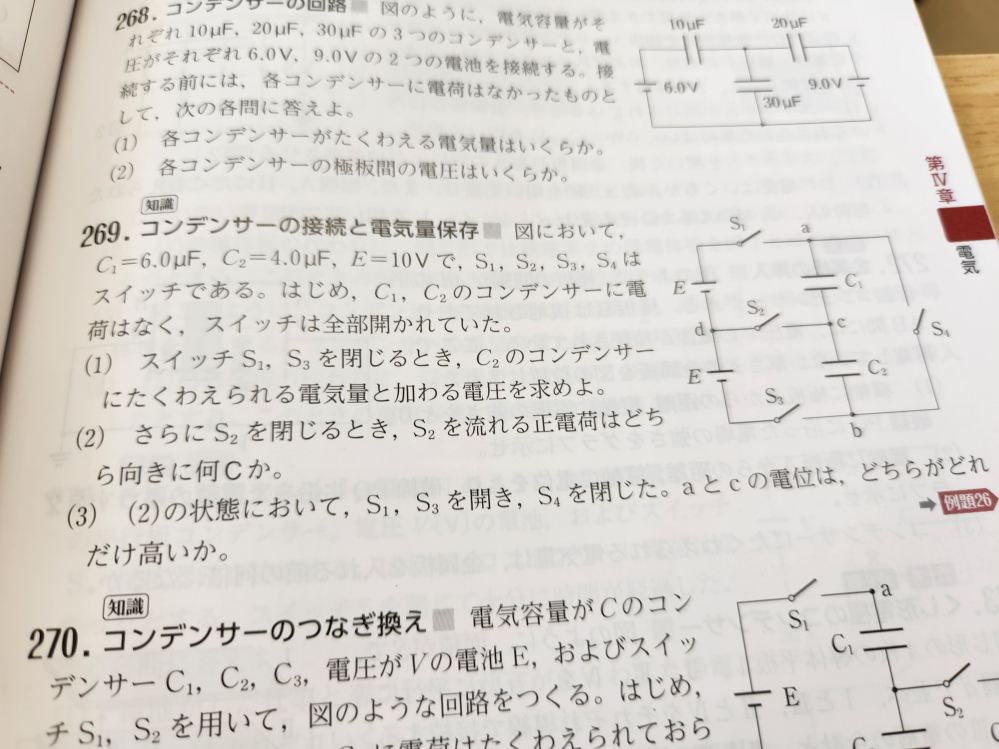 268. コンデンサーの回路 図のように，電気容量がそ
れぞれ10μF，20μF，30μFの3つのコンデンサーと，電
圧がそれぞれ6.0V，9.0Vの2つの電池を接続する。接
続する前には，各コンデンサーに電荷はなかったものと
して，次の各問に答えよ。
(1) 各コンデンサーがたくわえる電気量はいくらか。
(2) 各コンデンサーの極板間の電圧はいくらか。
10μF
20μF
6.0V
9.0V
30μF
第Ⅳ章
電気
知識
269. コンデンサーの接続と電気量保存 図において，
C₁=6.0μF，C₂=4.0μF，E=10Vで，S₁，S₂，S₃，S₄は
スイッチである。はじめ，C₁，C₂のコンデンサーに電
荷はなく，スイッチは全部開かれていた。
(1) スイッチS₁，S₃を閉じるとき，C₂のコンデンサー
にたくわえられる電気量と加わる電圧を求めよ。
(2) さらにS₂を閉じるとき，S₂を流れる正電荷はどち
ら向きに何Cか。
(3) (2)の状態において，S₁，S₃を開き，S₄を閉じた。aとcの電位は，どちらがどれ
だけ高いか。
➡例題26
S₁
a
E
C₁
S₂
d
c
S₄
E
C₂
S₃
b
知識
270. コンデンサーのつなぎ換え 電気容量がCのコン
デンサーC₁，C₂，C₃，電圧がVの電池E，およびスイッ
チS₁，S₂を用いて，図のような回路をつくる。はじめ，
に電荷はたくわえられておら
S₁
a
C₁
E
S₂